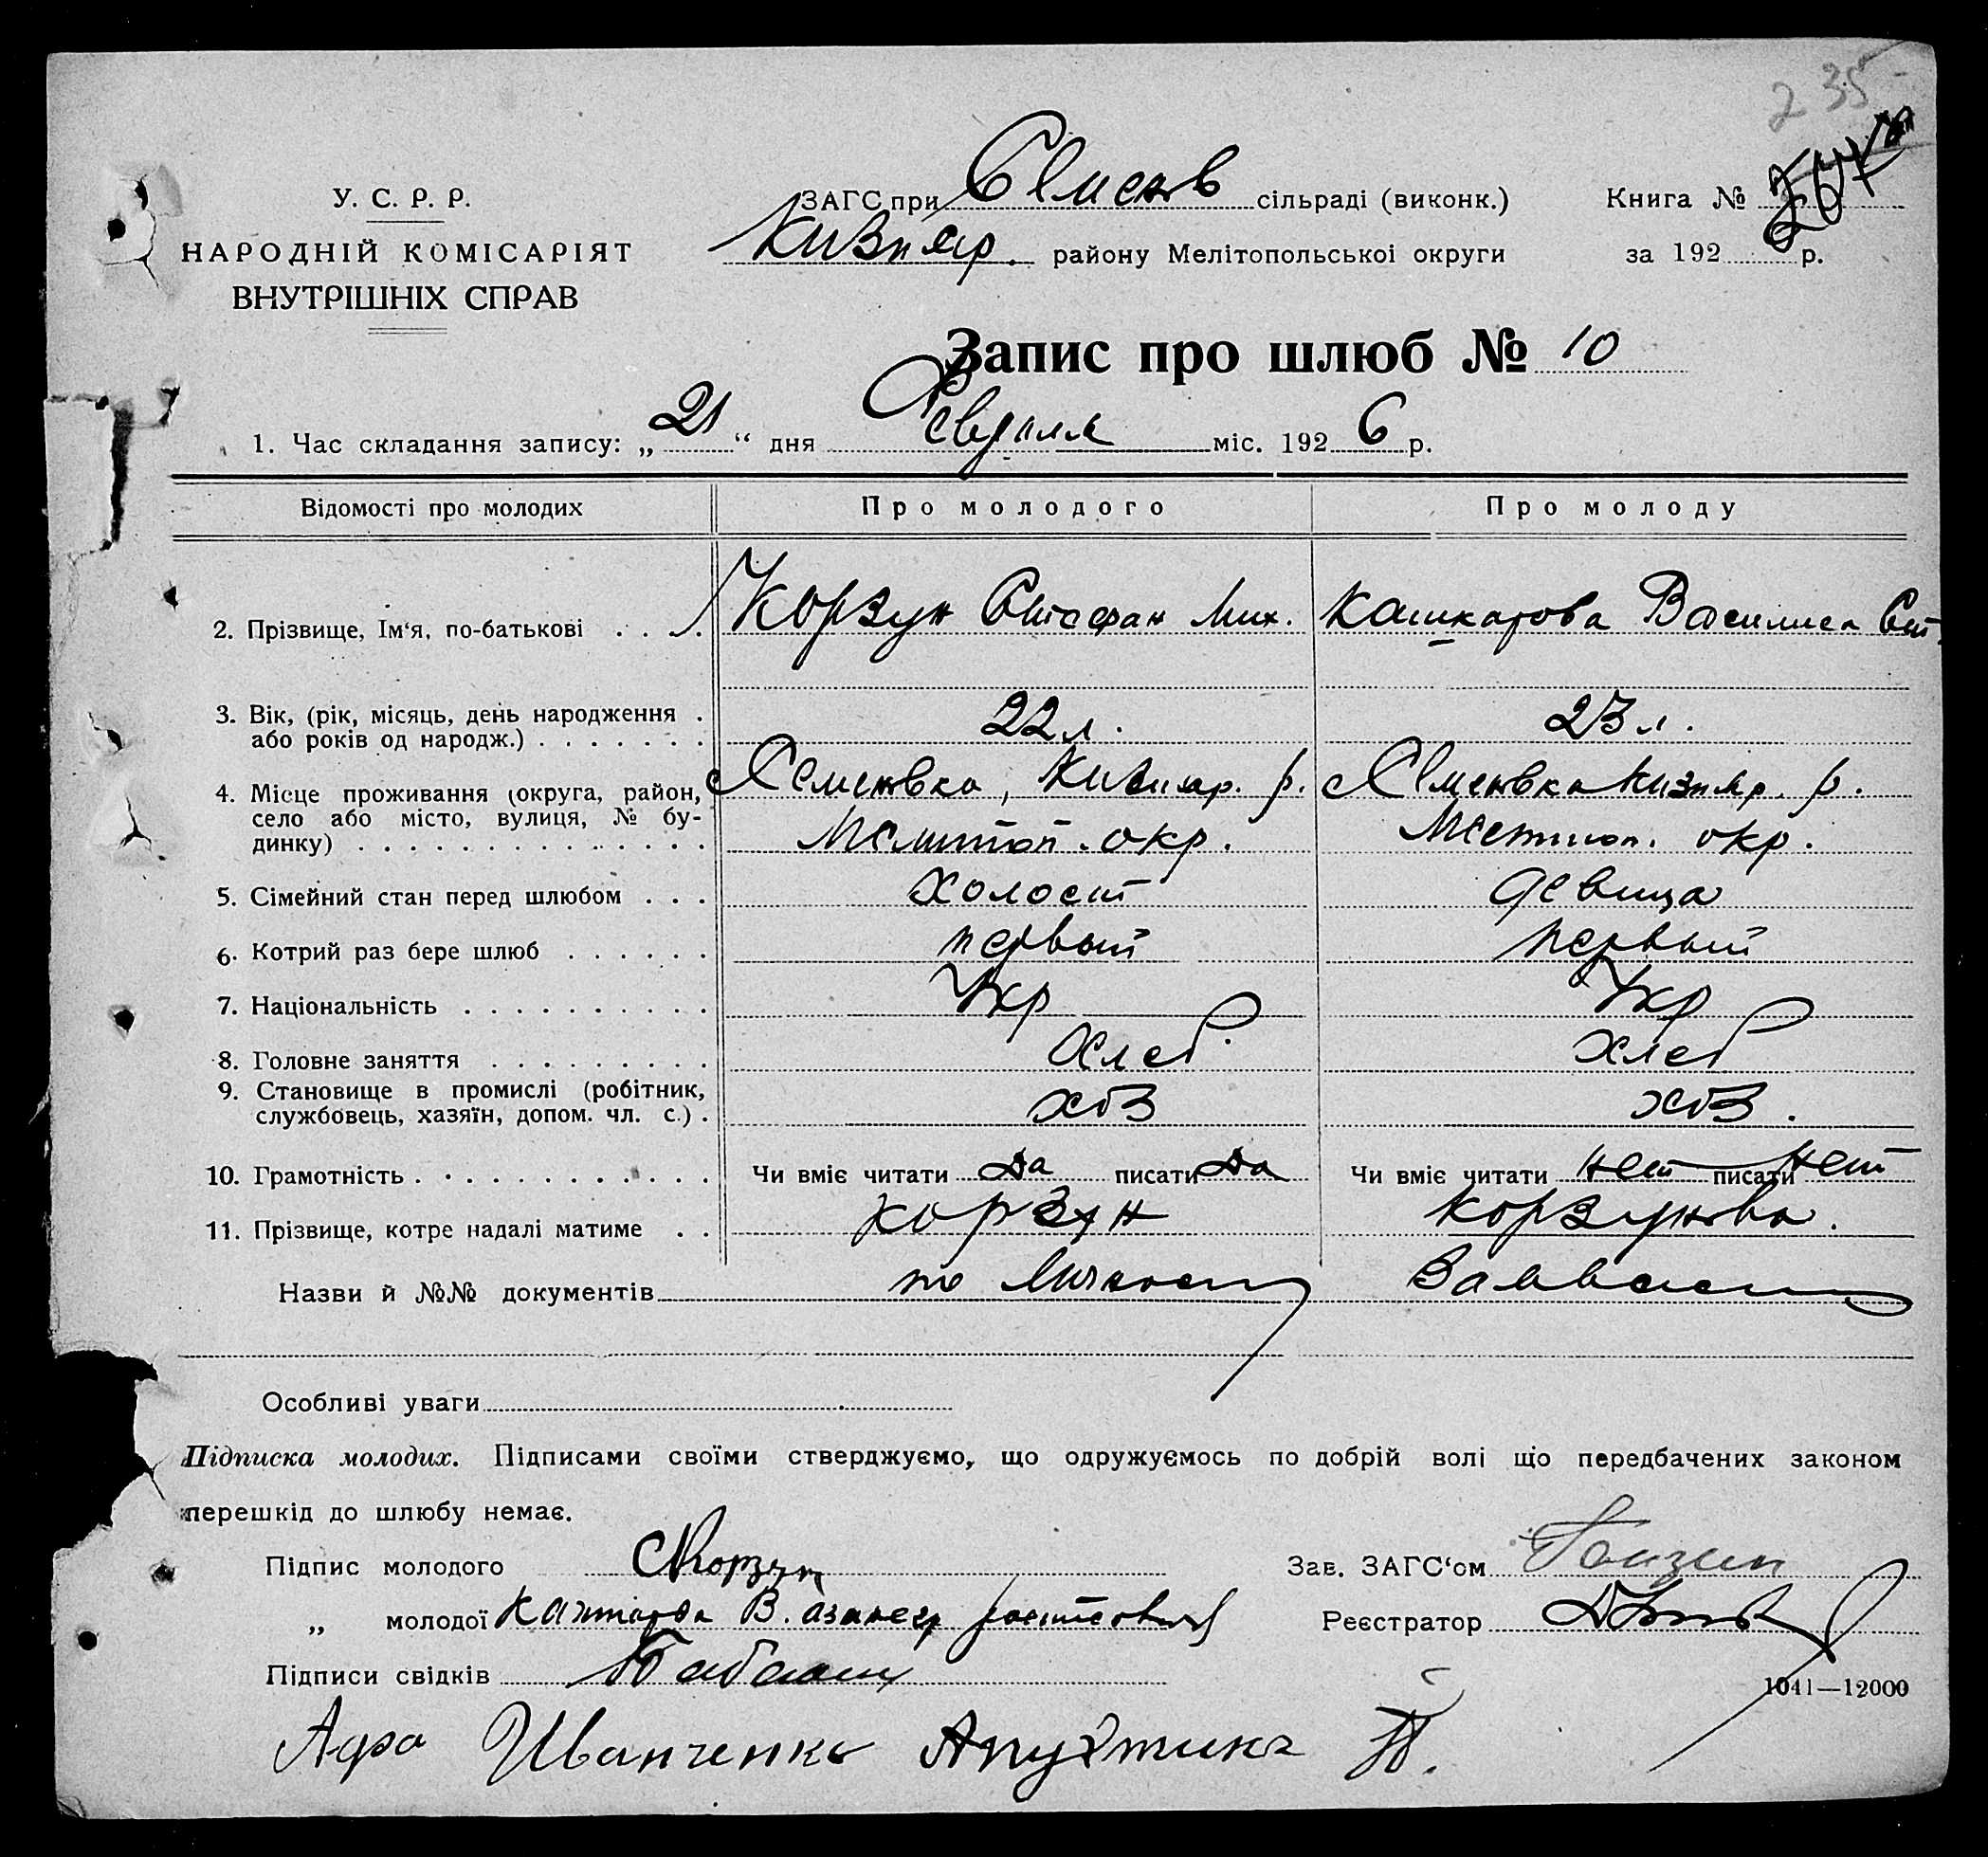 235
У. С. Р. Р.
НАРОДНІЙ КОМІСАРІЯТ
ВНУТРІШНІХ СПРАВ
ЗАГС при Семенов сільраді (виконк.)
Кизияр. району Мелітопольськоі округи
Книга №
за 192 6 р.
Запис про шлюб № 10
1. Час складання запису: „ 21 “ дня Февраля міс. 192 6 р.
Відомості про молодих Про молодого Про молоду
2. Прізвище, Ім‘я, по-батькові . . . Корзун Стефан Мих. Кашкарова Василиса Ст.
3. Вік, (рік, місяць, день народження .
або років од народж.) . . . . . . . 22 л. 23 л.
4. Місце проживання (округа, район, с Семеновка, Кизияр. р. с Семеновка Кизияр. р.
село або місто, вулиця, № бу-
динку) . . . . . . . . . . . . . . Мелитоп. окр. Мелитоп. окр.
5. Сімейний стан перед шлюбом . . . холост девица
6. Котрий раз бере шлюб . . . . . . первый первый
7. Національність . . . . . . . . . . Укр Укр
8. Головне заняття . . . . . . . . . Хлеб. хлеб
9. Становище в промислі (робітник,
службовець, хазяїн, допом. чл. с.) . хоз хоз.
10. Грамотність . . . . . . . . . . . . Чи вміє читати Да писати Да Чи вміє читати нет писати нет
11. Прізвище, котре надалі матиме . . Корзун Корзунова.
Назви й №№ документів по
Особливі уваги
Підписка молодих. Підписами своїми стверджуємо, що одружуємось по добрій волі що передбачених законом
перешкід до шлюбу немає.
Підпис молодого СКорзун
Зав. ЗАГС‘ом
„ молодої В.
Реєстратор
Підписи свідків
1041—12000
Иванченко П.